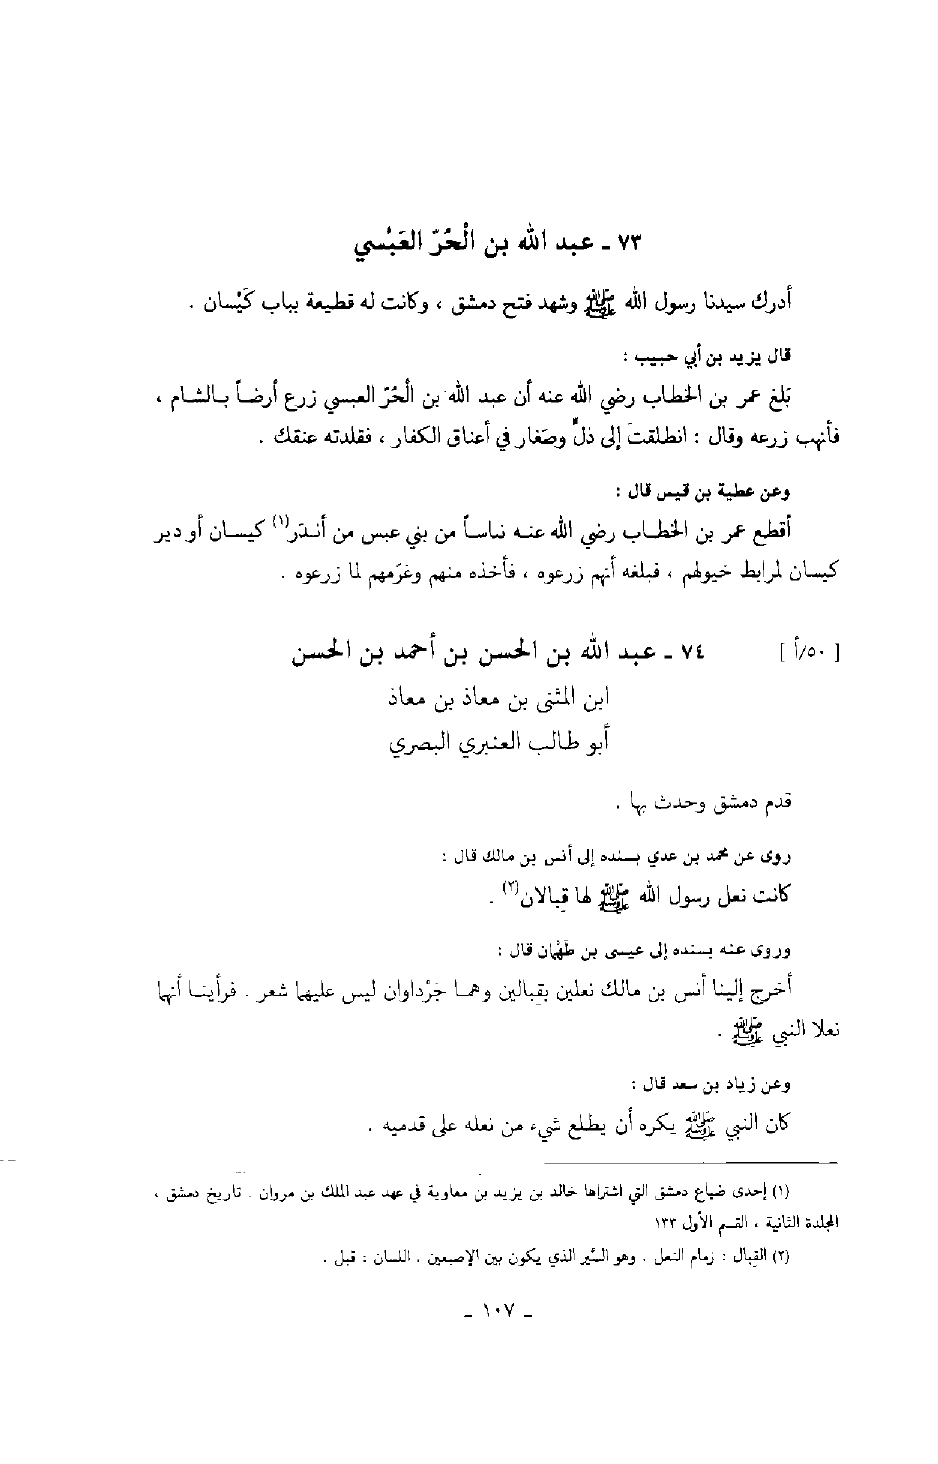 ٧٣ ـ عبد الله بن الْحُرّ العَبْسي
أدرك سيدنا رسول الله ﷺ وشهد فتح دمشق ، وكانت له قطيعة بباب كَيْسان .
قال يزيد بن أبي حبيب :
بَلغ عمر بن الخطاب رضي الله عنه أن عبد الله بن الْحُرّ العبسي زرع أرضاً بالشام ،
فأنهب زرعه وقال : انطلقتَ إلى ذلٍّ وصَغار في أعناق الكفار ، فقلدته عنقك .
وعن عطية بن قيس قال :
أقطع عمر بن الخطاب رضي الله عنه ناساً من بني عبس من أندَر(١) كيسان أو دير
كيسان لمرابط خيولهم ، فبلغه أنهم زرعوه ، فأخذه منهم وغرّمهم لما زرعوه .
[ ٥٠/أ ] ٧٤ ـ عبد الله بن الحسن بن أحمد بن الحسن
ابن المثنى بن معاذ بن معاذ
أبو طالب العنبري البصري
قدم دمشق وحدث بها .
روى عن محمد بن عدي بسنده إلى أنس بن مالك قال :
كانت نعل رسول الله ﷺ لها قِبالان(٢) .
وروى عنه بسنده إلى عيسى بن طَهْمان قال :
أخرج إلينا أنس بن مالك نعلين بقِبالين وهما جَرْداوان ليس عليهما شعر . فرأينا أنها
نعلا النبي ﷺ .
وعن زياد بن سعد قال :
كان النبي ﷺ يكره أن يطلع شيء من نعله على قدميه .
(١) إحدى ضياع دمشق التي اشتراها خالد بن يزيد بن معاوية في عهد عبد الملك بن مروان . تاريخ دمشق ،
المجلدة الثانية ، القسم الأول ١٣٣
(٢) القِبال : زمام النعل . وهو السَّير الذي يكون بين الإصبعين . اللسان : قبل .
ـ ١٠٧ ـ